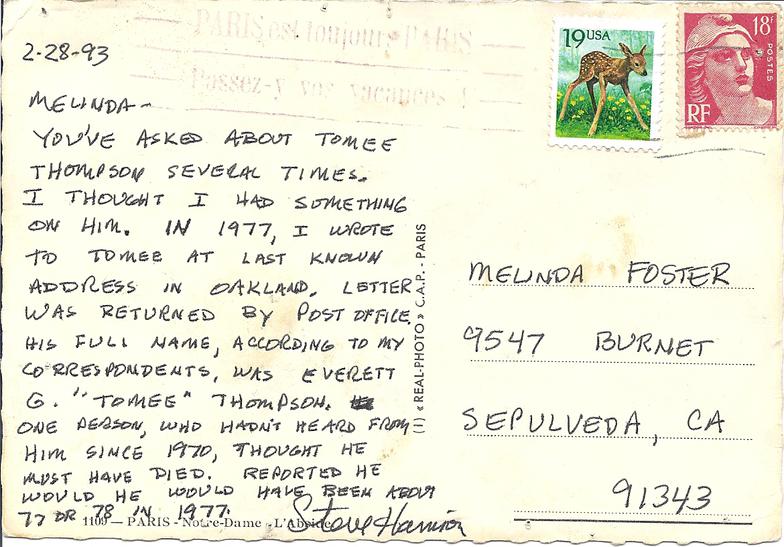 PARIS est toujours PARIS
Passez-y vos vacances !
19 USA
18F
POSTES
RF
2-28-93
MELINDA-
YOU'VE ASKED ABOUT TOMEE
THOMPSON SEVERAL TIMES.
I THOUGHT I HAD SOMETHING
ON HIM. IN 1977, I WROTE
TO TOMEE AT LAST KNOWN
ADDRESS IN OAKLAND. LETTER
WAS RETURNED BY POST OFFICE.
HIS FULL NAME, ACCORDING TO MY
CORRESPONDENTS, WAS EVERETT
G. "TOMEE" THOMPSON.
ONE PERSON, WHO HADN'T HEARD FROM
HIM SINCE 1970, THOUGHT HE
MUST HAVE DIED. REPORTED HE
WOULD HE WOULD HAVE BEEN ABOUT
77 OR 78 IN 1977.
Steve Harrison
1109 — PARIS - Notre-Dame - L'Abside
(1) « REAL-PHOTO » C.A.P. - PARIS
MELINDA FOSTER
9547 BURNET
SEPULVEDA, CA
91343